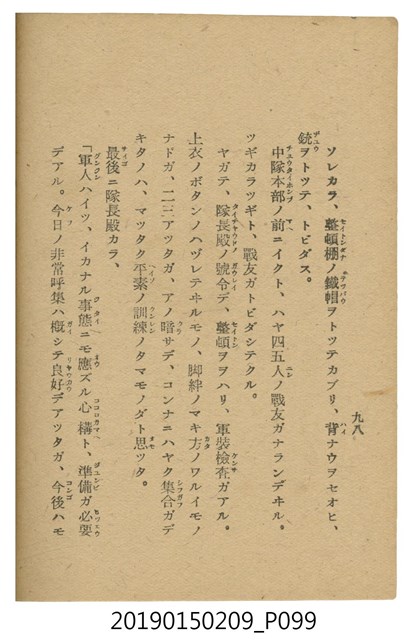 九八
ソレカラ、整頓棚ノ鐵帽ヲトツテカブリ、背ナウヲセオヒ、
銃ヲトツテ、トビダス。
中隊本部ノ前ニイクト、ハヤ四五人ノ戰友ガナランデヰル。
ツギカラツギト、戰友ガトビダシテクル。
ヤガテ、隊長殿ノ號令デ、整頓ヲヲハリ、軍裝檢査ガアル。
上衣ノボタンノハヅレテヰルモノ、脚絆ノマキ方ノワルイモノ
ナドガ、二三アツタガ、アノ暗サデ、コンナニハヤク集合ガデ
キタノハ、マツタク平素ノ訓練ノタマモノダト思ツタ。
最後ニ隊長殿カラ、
「軍人ハイツ、イカナル事態ニモ應ズル心構ト、準備ガ必要
デアル。今日ノ非常呼集ハ概シテ良好デアツタガ、今後ハモ
20190150209_P099